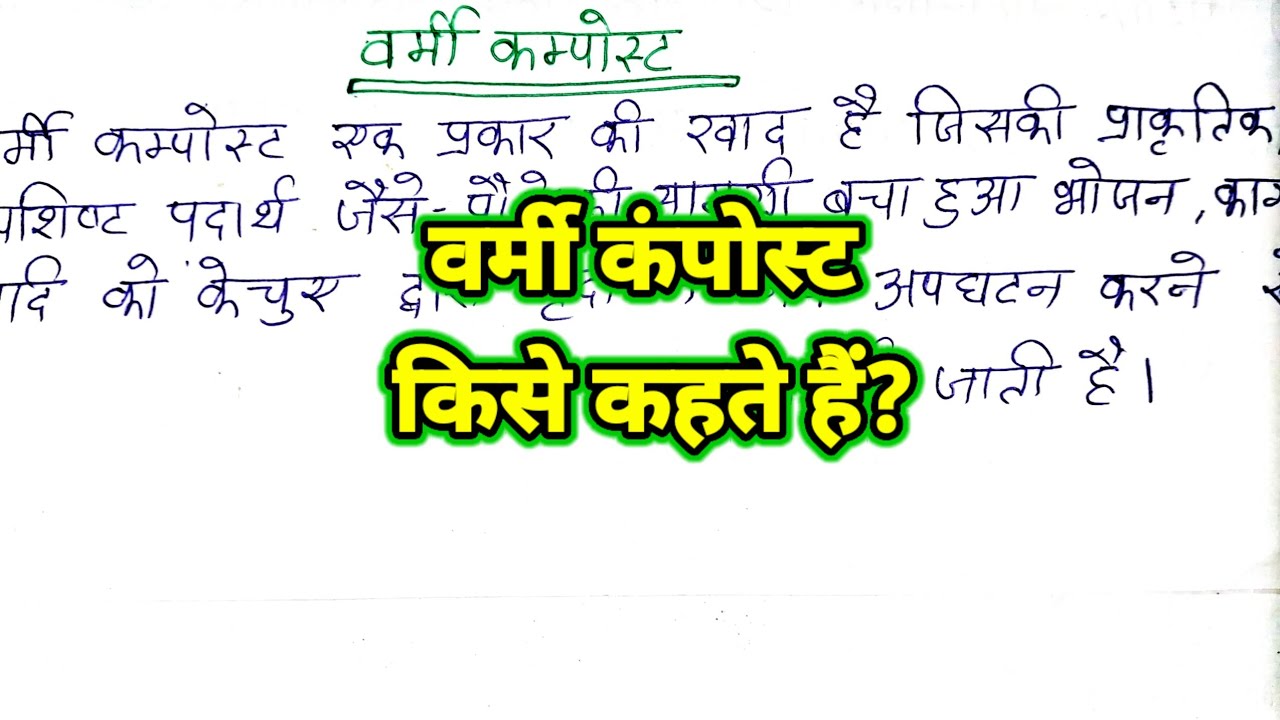 वर्मी कम्पोस्ट
र्मी कम्पोस्ट एक प्रकार की खाद है जिसकी प्राकृतिक
शिष्ट पदार्थ जैसे- बचा हुआ भोजन, काग
दि को केचुए अपघटन करने
वर्मी कंपोस्ट
किसे कहते हैं?
जाती है।